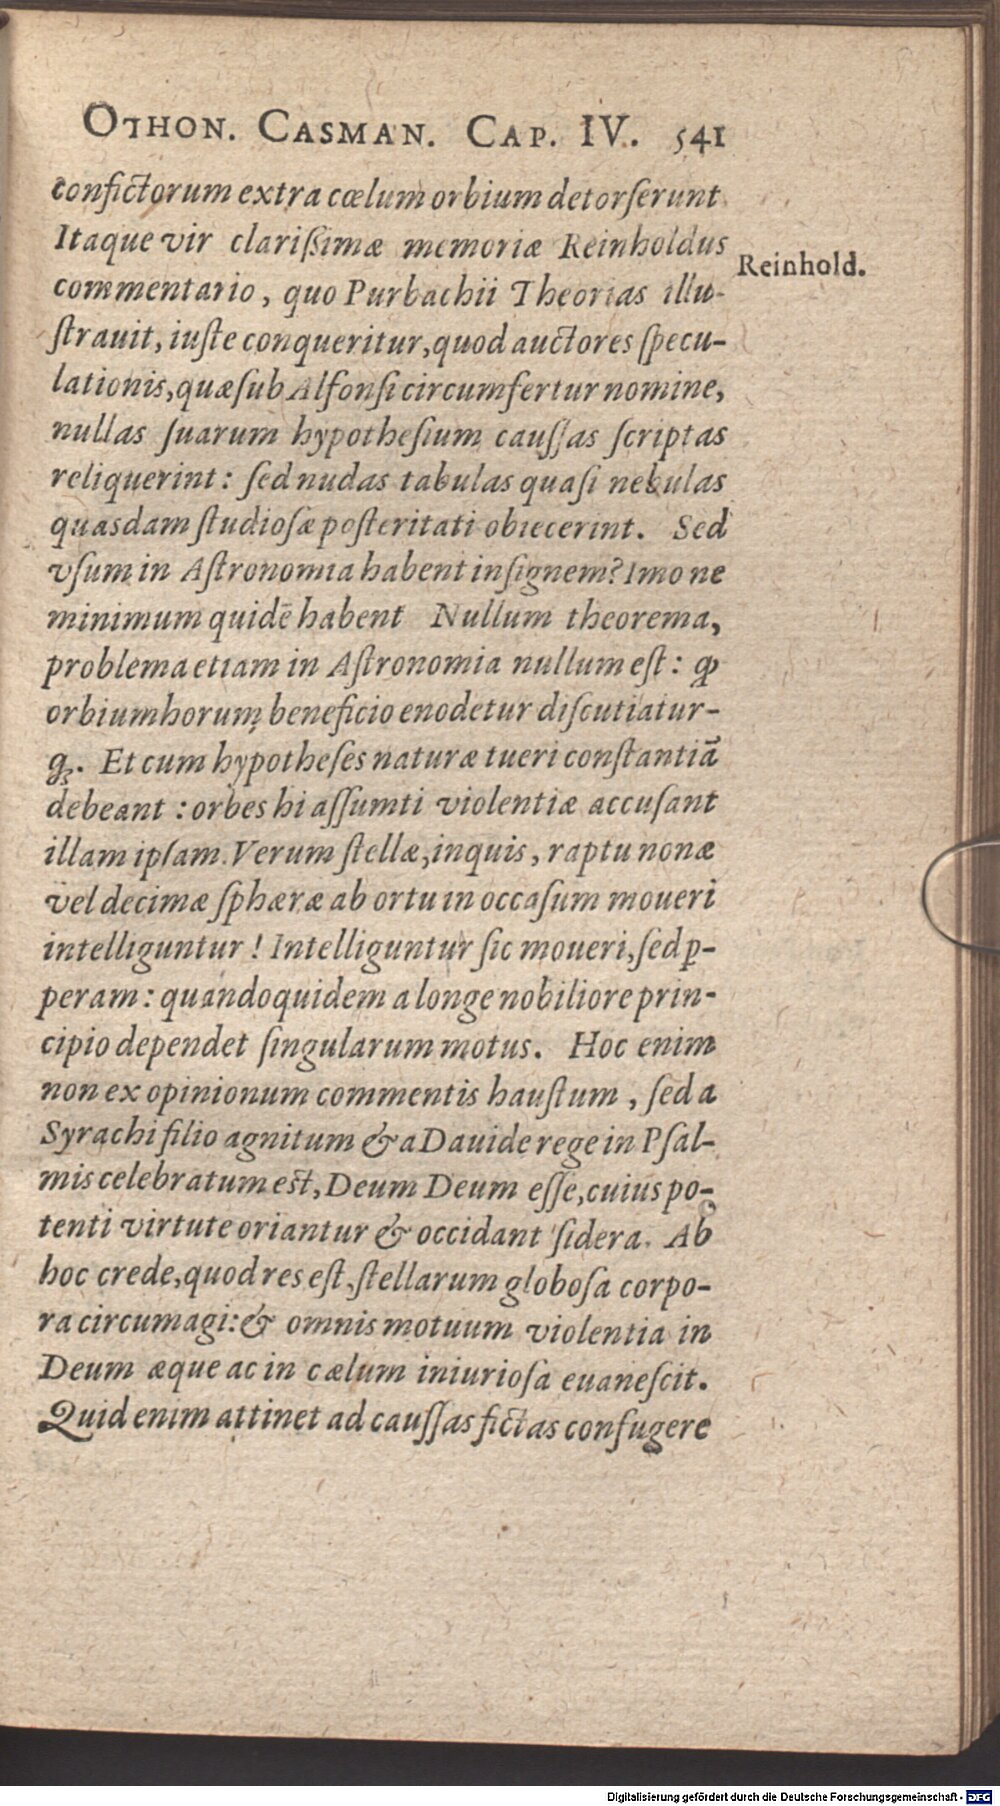 OTHON. CASMAN. CAP. IV. 541
confictorum extra cœlum orbium detorſerunt
Itaque vir clariſſimæ memoriæ Reinholdus
Reinhold.
commentario, quo Purbachii Theorias illu-
ſtrauit, iuſte conqueritur, quod auctores ſpecu-
lationis, quæ ſub Alfonſi circumfertur nomine,
nullas ſuarum hypotheſium cauſſas ſcriptas
reliquerint: ſed nudas tabulas quaſi nebulas
quasdam ſtudioſæ poſteritati obiecerint. Sed
vſum in Aſtronomia habent inſignem? Imo ne
minimum quidē habent Nullum theorema,
problema etiam in Aſtronomia nullum eſt: ꝙ
orbium horum beneficio enodetur diſcutiatur-
ꝗ;. Et cum hypotheſes naturæ tueri conſtantiã
debeant: orbes hi aſſumti violentiæ accuſant
illam ipſam. Verum ſtellæ, inquis, raptu nonæ
vel decimæ ſphæræ ab ortu in occaſum moueri
intelliguntur! Intelliguntur ſic moueri, ſed ꝑ-
peram: quandoquidem a longe nobiliore prin-
cipio dependet ſingularum motus. Hoc enim
non ex opinionum commentis hauſtum, ſed a
Syrachi filio agnitum & a Dauide rege in Pſal-
mis celebratum eſt, Deum Deum eſſe, cuius po-
tenti virtute oriantur & occidant ſidera. Ab
hoc crede, quod res eſt, ſtellarum globoſa corpo-
ra circumagi: & omnis motuum violentia in
Deum æque ac in cælum iniurioſa euaneſcit.
Quid enim attinet ad cauſſas fictas confugere
Digitalisierung gefördert durch die Deutsche Forschungsgemeinschaft - DFG